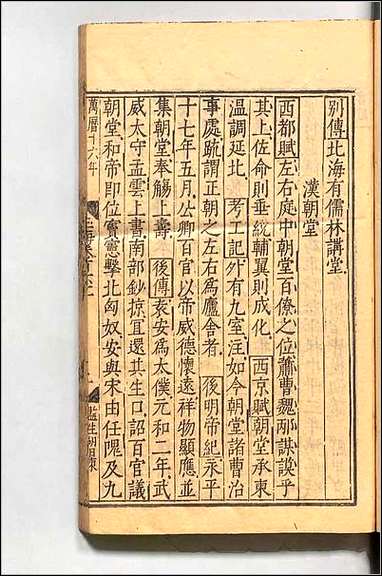 別傳北海有儒林講堂
漢朝堂
西都賦左右庭中朝堂百僚之位蕭曹魏邴謀謨乎
其上佐命則垂統輔翼則成化 西京賦朝堂承東
温調延北 考工記外有九室注如今朝堂諸曹治
事處疏謂正朝之左右爲廬舍者 後明帝紀永平
十七年五月公卿百官以帝威德懷遠祥物顯應並
集朝堂奉觴上壽 後傳袁安爲太僕元和二年武
威太守孟雲上書南部鈔掠宜還其生口詔百官議
朝堂和帝即位竇憲擊北匈奴安與宋由任隗及九
萬曆十六年
玉海卷百六十一
監生胡